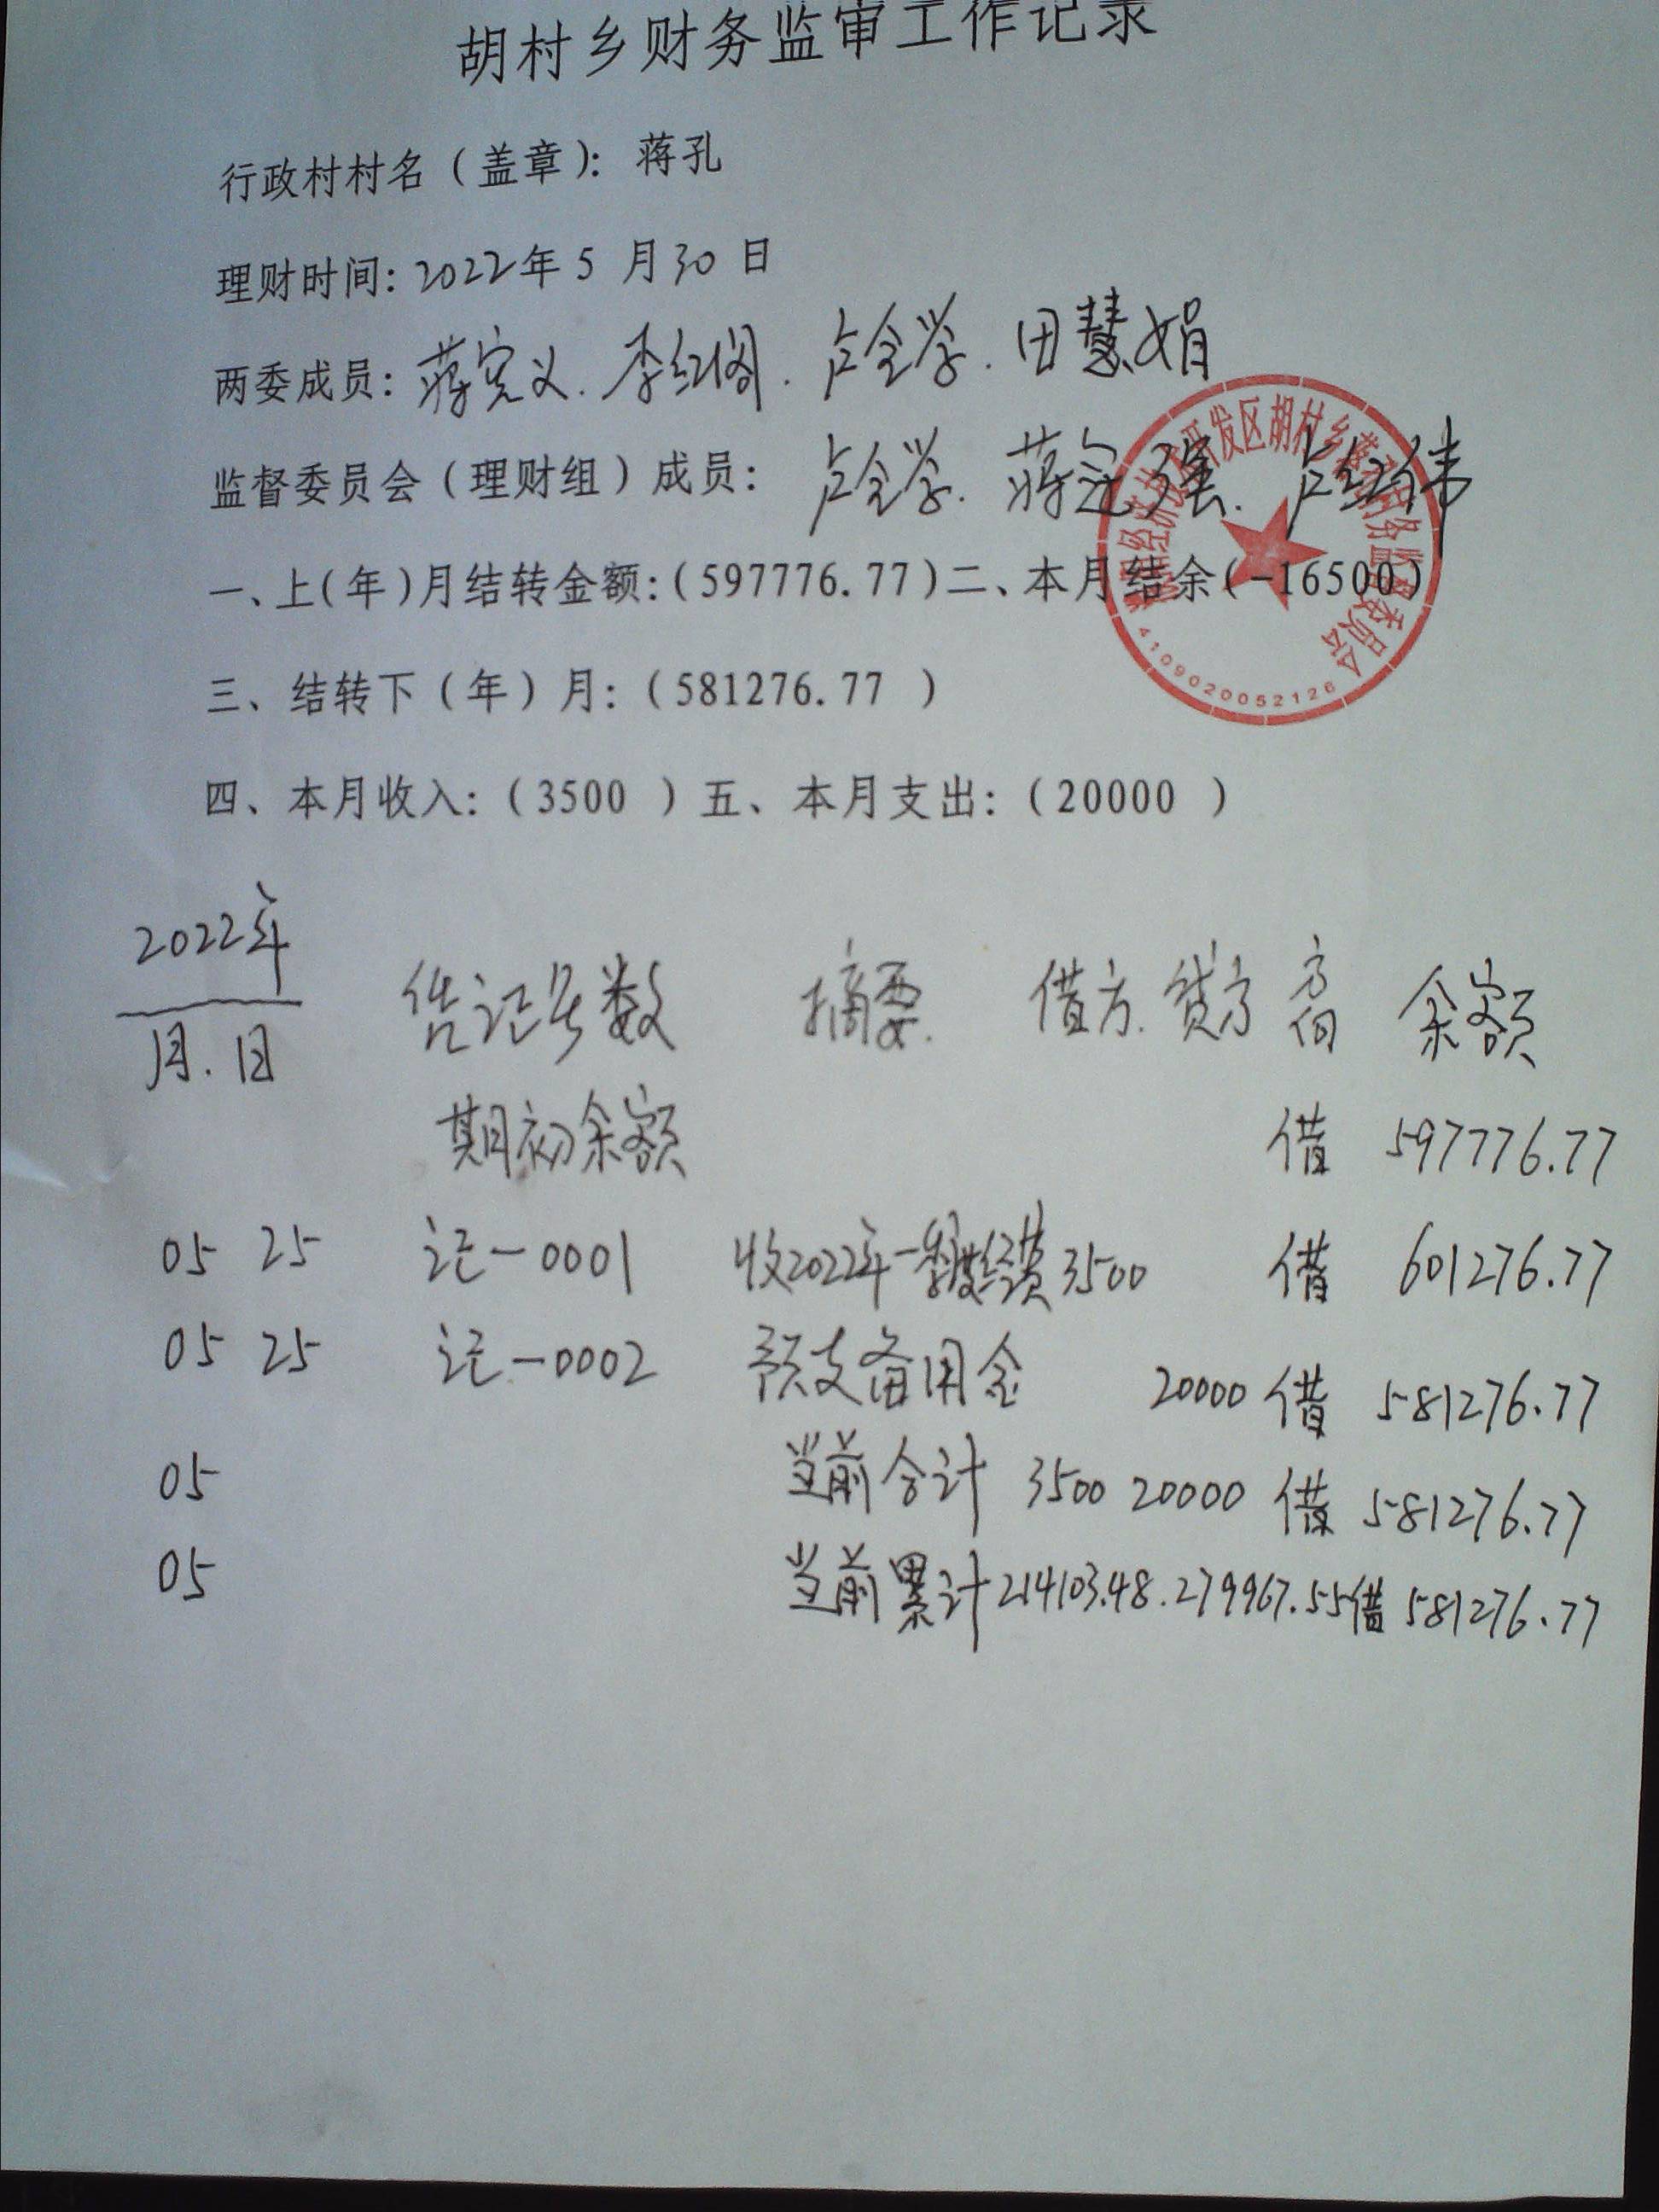 胡村乡财务监审工作记录
行政村村名（盖章）：蒋孔
理财时间：2022年5月30日
两委成员：蒋宪义.李红阁.卢全学.田慧娟
监督委员会（理财组）成员：卢全学.蒋定强.卢红伟
开发区胡村乡 务监督委员会
4109020052126
一、上(年)月结转金额：(597776.77)二、本月结余(-16500)
三、结转下（年）月：（581276.77 ）
四、本月收入：（3500 ）五、本月支出：（20000 ）
2022年
月.日 凭记号数 摘要. 借方.贷方 方向 余额
期初余额 借 597776.77
05 25 记-0001 收2022年一季度经费 3500 借 601276.77
05 25 记-0002 预支备用金 20000 借 581276.77
05 当前合计 3500 20000 借 581276.77
05 当前累计 214103.48.279967.55 借 581276.77